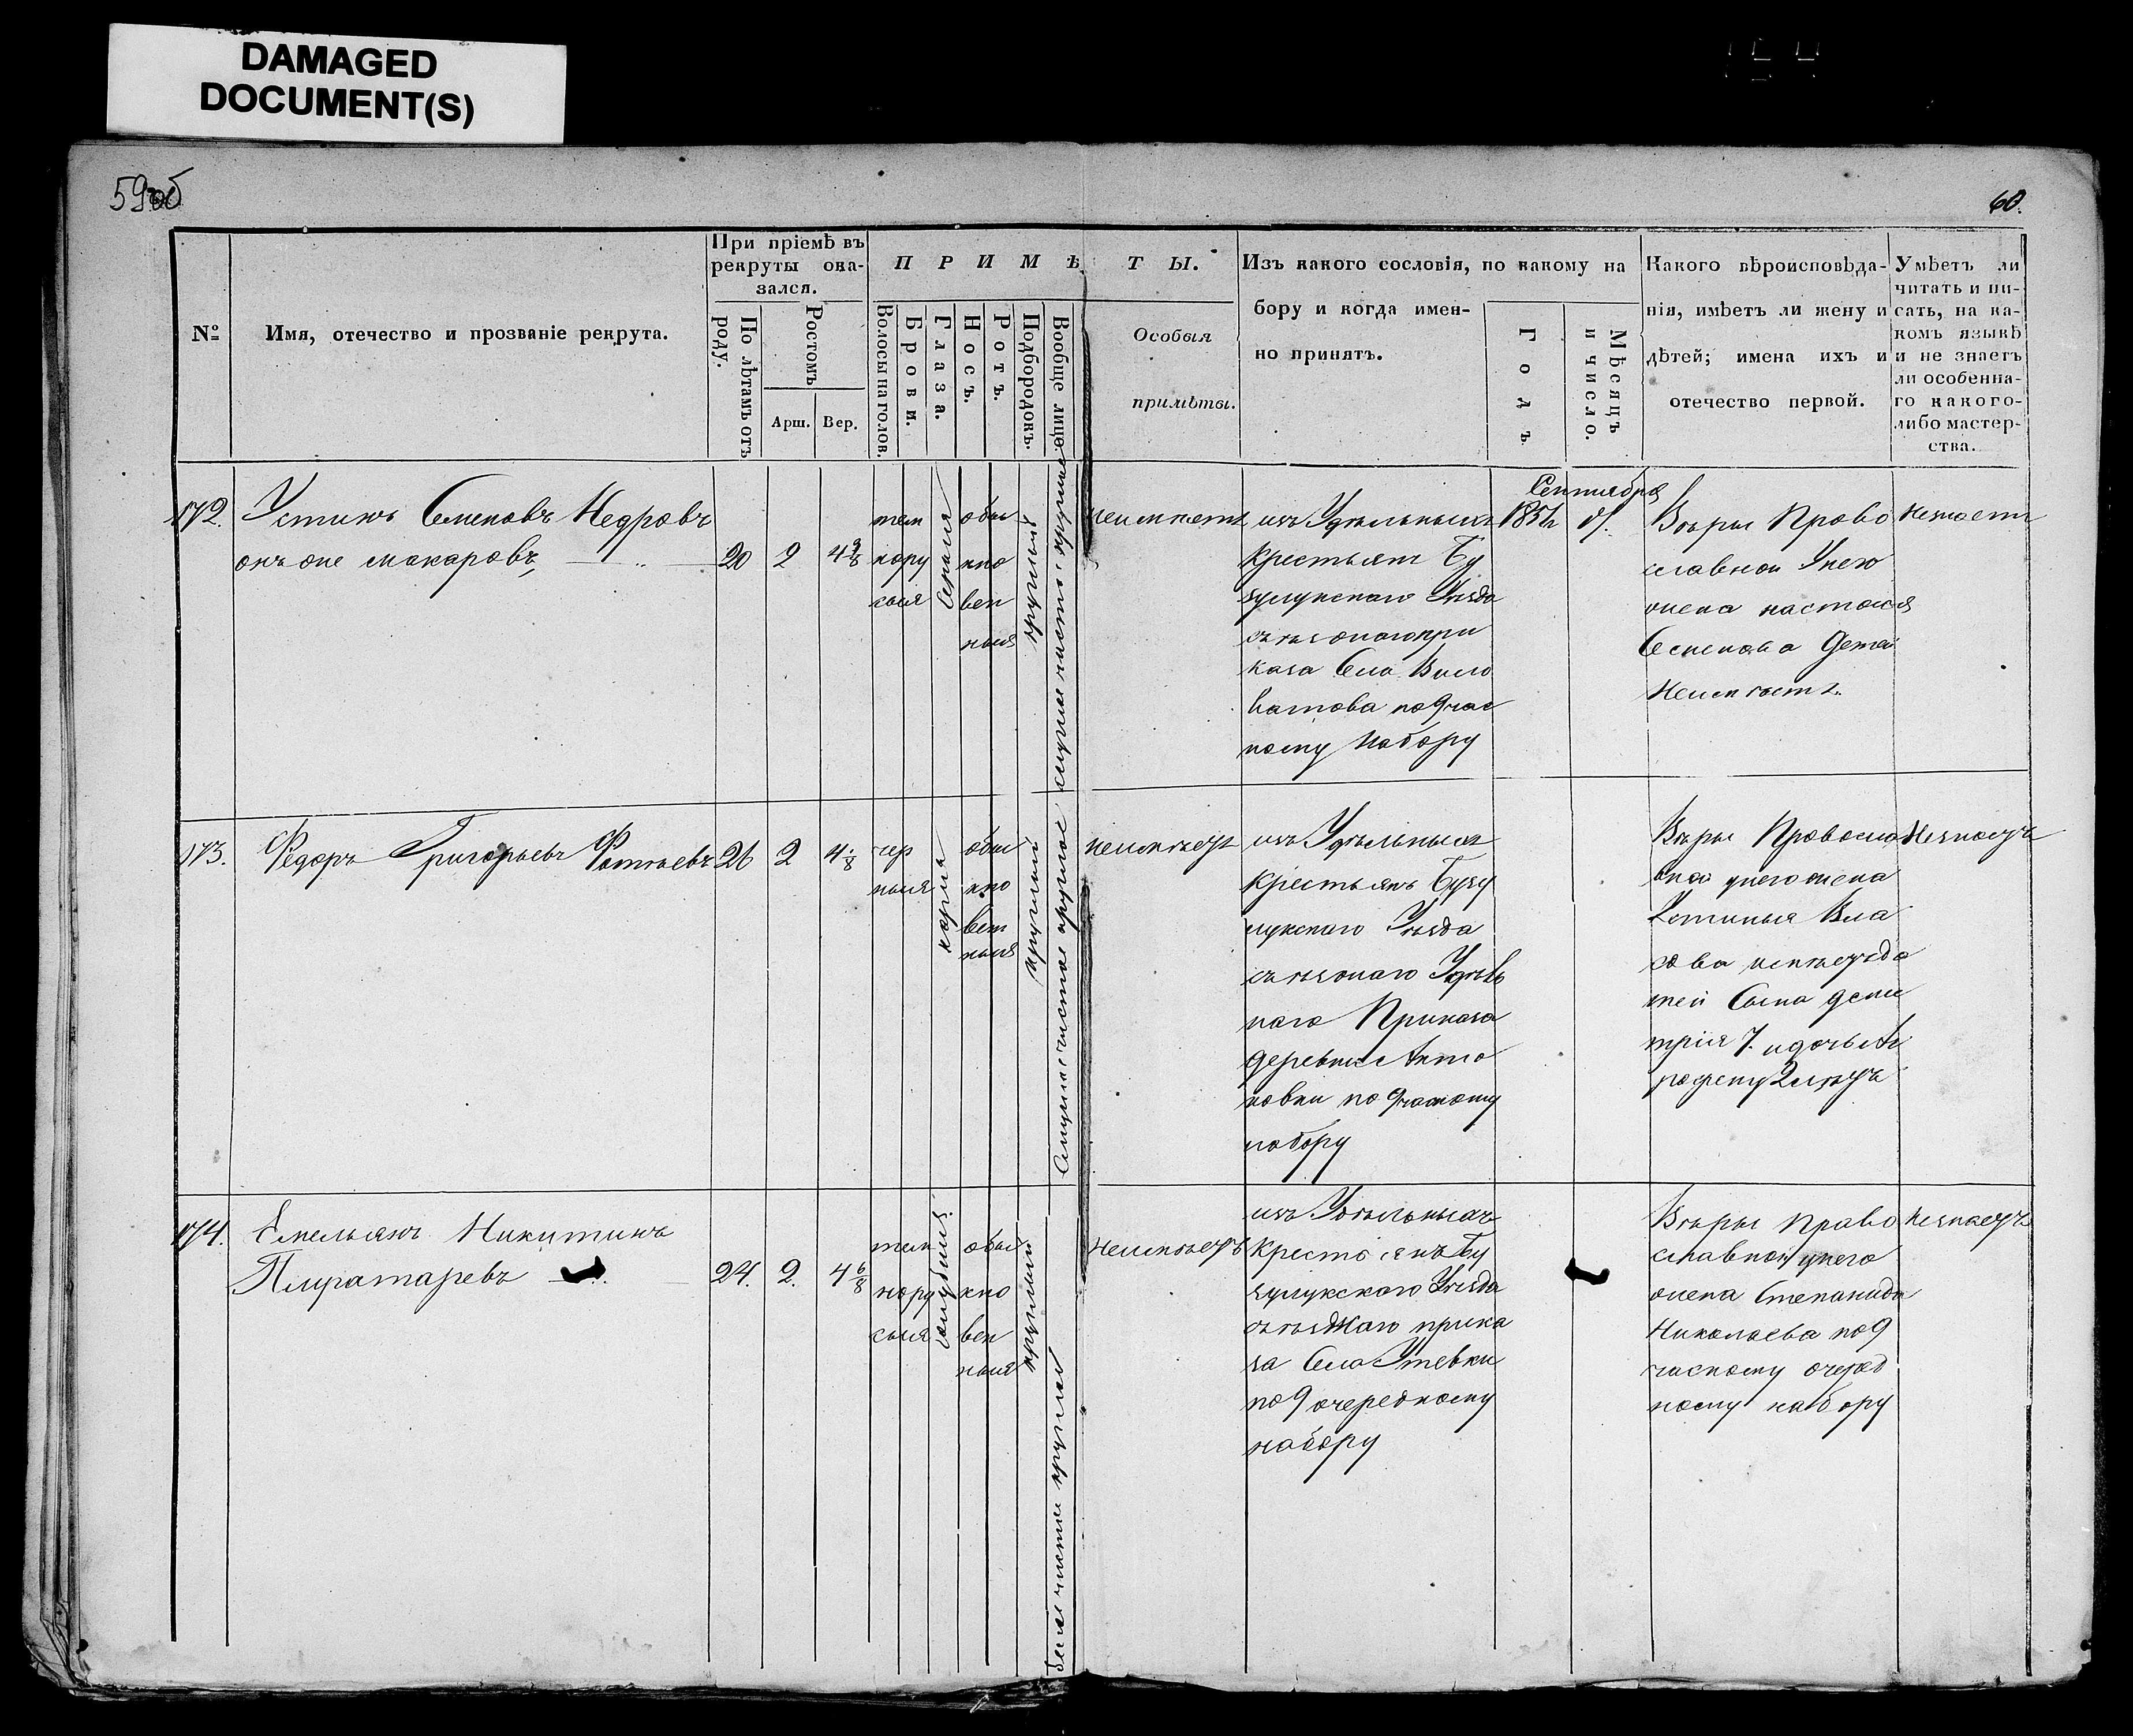 DAMAGED
DOCUMENT(S)
59об
60.
№
Имя, отечество и прозваніе рекрута.
При пріемѣ въ
рекруты ока-
зался.
По лѣтамъ отъ
роду.
Ростомъ
Арш.
Вер.
ПРИМѢТЫ.
Волосы на голов.
Брови.
Глаза.
Носъ.
Ротъ.
Подбородокъ.
Вообще лице.
Особыя
примѣты.
Изъ какого сословія, по какому на
бору и когда имен-
но принятъ.
Годъ
Мѣсяцъ
и число.
Какого вѣроисповѣда-
нія, имѣетъ ли жену и
дѣтей; имена ихъ и
отечество первой.
Умѣетъ ли
читать и пи-
сать, на ка-
комъ языкѣ
и не знаетъ
ли особенна-
го какого-
либо мастер-
ства.
172.
Устинъ Семеновъ Недровъ
онъ же макаровъ
20
2
4 3/8
тем
нору
сыя
Серыя
обы
кно
вен
ныя
круглый
смуглое чисто круглое
неимѣетъ
изъ Удѣльныхъ
Крестьянъ Бу
зулукскаго Уѣзда
съѣзжаго при
каза Села
по 9 час
ному набору
Сентября
Вѣры Право
славной Унего
жена настасья
Семенова Детей
Неимѣетъ.
незнаетъ
173.
Федоръ Григорьевъ Фатѣевъ
26
2
чер
ныя
карія
обы
кно
вен
ныя
круглый
Смуглое чистое круглое
неимѣетъ
изъ Удѣльныхъ
Крестьянъ Бузу
лукскаго Уѣзда
съѣзжаго Удѣль
наго Приказа
деревни Анто
новки по 9 частному
набору
Вѣры Правосла
вной унего жена
Устинья Вла
сова имѣетъ де
тей Сына дми
трія 7. и дочь Аг
рофену 2 лѣтъ
Незнаетъ
174.
Емельянъ Никитинъ
24.
2.
4 6/8
тем
нору
сыя
голубыя
обы
кно
вен
ныя
круглый
белое чистое круглое
Неимѣетъ
изъ Удѣльныхъ
Крестьянъ Бу
зулукскаго Уѣзда
съѣзжаго прика
за Села Утевки
по 9 очередному
набору
Вѣры право
славной унего
жена Степанида
Николаева по 9
часному очеред
ному набору
незнаетъ